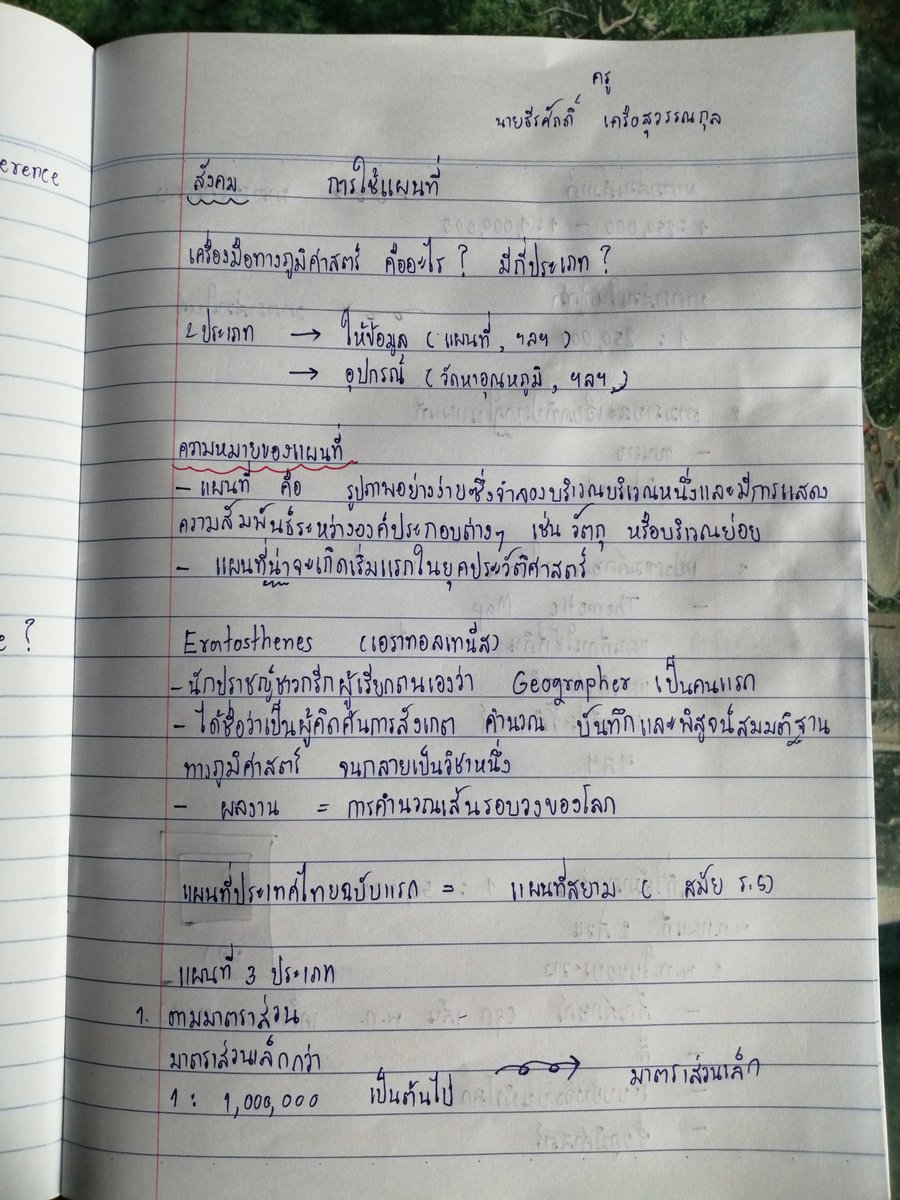 erence
e ?
ครู
นายธีรศักดิ์ เครือสุวรรณกุล
สังคม การใช้แผนที่
เครื่องมือทางภูมิศาสตร์ คืออะไร ? มีกี่ประเภท ?
2 ประเภท → ให้ข้อมูล ( แผนที่ , ฯลฯ )
→ อุปกรณ์ ( วัดหาอุณหภูมิ , ฯลฯ )
ความหมายของแผนที่
- แผนที่ คือ รูปภาพอย่างง่ายซึ่งจำลองบริเวณบริเวณหนึ่งและมีการแสดง
ความสัมพันธ์ระหว่างองค์ประกอบต่างๆ เช่น วัตถุ หรือบริเวณย่อย
- แผนที่น่าจะเกิดเริ่มแรกในยุคประวัติศาสตร์
Eratosthenes (เอราทอสเทนีส)
- นักปราชญ์ชาวกรีกผู้เรียกตนเองว่า Geographer เป็นคนแรก
- ได้ชื่อว่าเป็นผู้คิดค้นการสังเกต คำนวณ บันทึกและพิสูจน์สมมติฐาน
ทางภูมิศาสตร์ จนกลายเป็นวิชาหนึ่ง
- ผลงาน = การคำนวณเส้นรอบวงของโลก
แผนที่ประเทศไทยฉบับแรก = แผนที่สยาม ( สมัย ร.5)
แผนที่ 3 ประเภท
1. ตามมาตราส่วน
มาตราส่วนเล็กกว่า
1 : 1,000,000 เป็นต้นไป → มาตราส่วนเล็ก